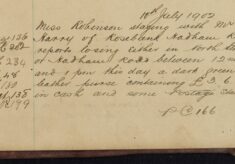 10th July 1902
Miss Robinson staying with Mr
Harry of Rosebank Hadham R
reports losing either in North Str
or Hadham Road between 12 no
and 1 pm this day a dark green
leather purse containing £
in cash and some Postage Sta
PC 166
234
48